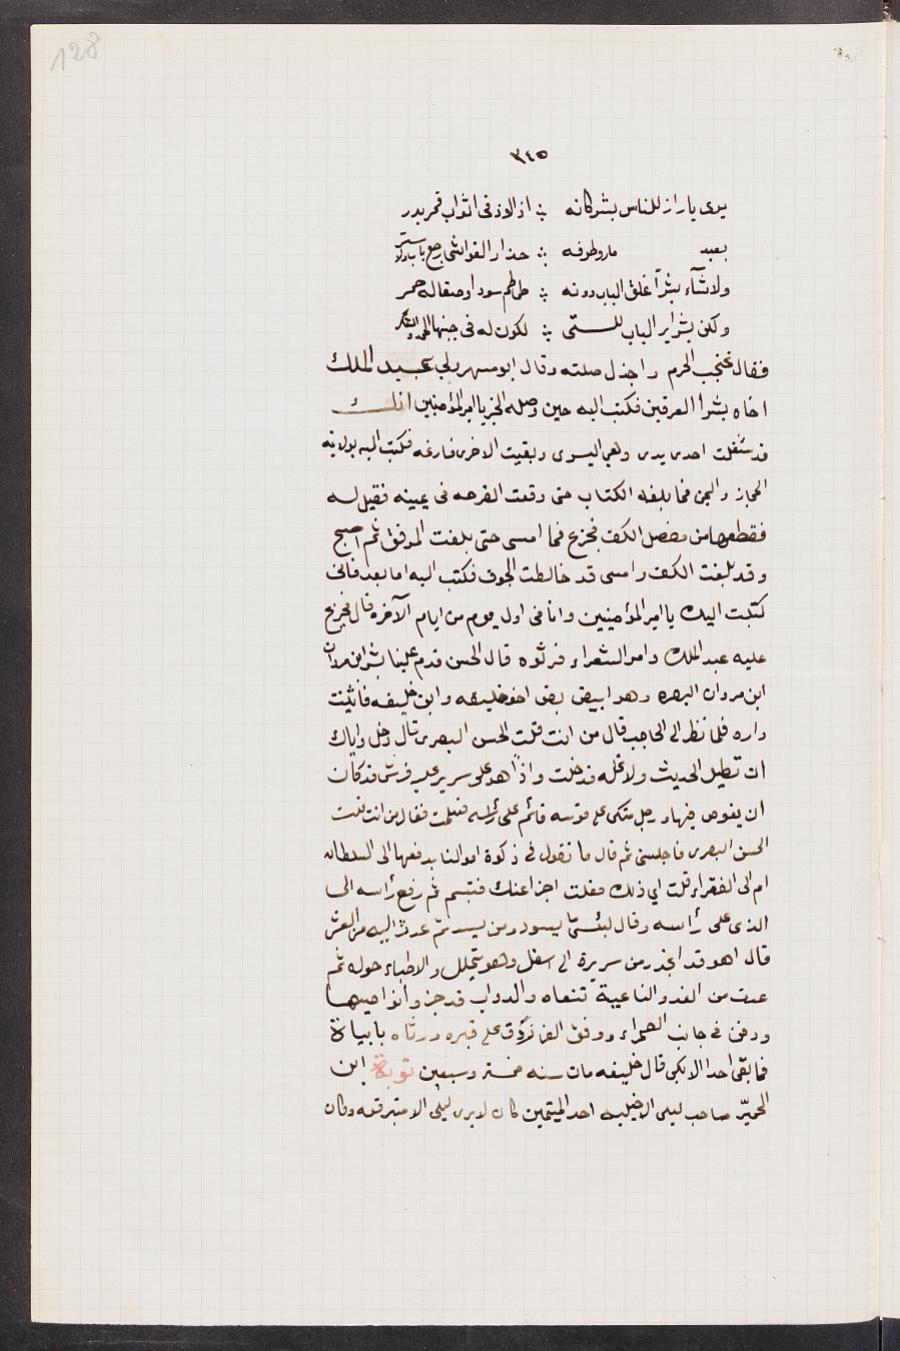 128
٣٤٥
يرى يارا از للناس بشر كانه ؛ از الاذ فى اثواب قمر بدر
بعيد ماروطوفه ؛ حذار الغوائشى رجع باب اولا ستر
ولا شآء بشرا غلق الباب دونه ؛ طماطم سود او صقالة حمر
ولكن بشر اير الباب للستى ؛ لكون له فى جنبها الحمد والشكر
فقال غنجب الحرم واجذل صلته وقال ابو مسهر ولي عبيد الملك
اخاه بشرا العرقين فكتب اليه حين وصله الخبر يا امير المؤمنين انك
قد شغلت احدى يدى وهى اليسرى وبقيت الاخرى فارغه فكتب اليه بولايته
الحجاز واليمن فما بلغه الكتاب حتى وقعت القرحه فى يمينه فقيل له
فقطعها من مفصل الكف فجزع فما امسى حتى بلغت المرفق ثم اصبح
وقد بلغت الكتف وامسى قد خالطت الجوف فكتب اليه اما بعد فانى
كتبت اليك يا امير المؤمنين وانا فى اول يوم من ايام الآخره قال فجزع
عليه عبد الملك وامر الشعراء فرثوه قال الحسن قدم علينا بشر ابن مروان
ابن مروان البصره وهو ابيض بض اخو خليفه وابن خليفه فأتيت
داره فلما نظر الى الحاجب قال من انت قلت الحسن البصرى قال دخل واياك
ان تطيل الحديث ولا تمله فدخلت واذا هو على سرير عليه فرش قد كان
ان يغوص فيها ورجل متكى على قوسه قائم على رأسه فسلمت فقال من انت قلت
الحسن البصرى فاجلسنى ثم قال ما تقول فى زكوة اموالنا يدفعها الى السلطان
ام الى الفقراء قلت اي ذلك فعلت اجزا عنك فتبسم ثم رفع رأسه الى
الذى على رأسه وقال لبشى ما يسود من يسود ثم عدت اليه من العشى
قال اهو قد انحدر من سريرة الى اسفل وهو يتململ والاطباء حوله ثم
عدت من الغد والناعية تنعاه والدواب قد جزوا نواصيها
ودفن فى جانب الصحراء ووقف الفرزدق على قبره ورثاه بابياة
فما بقى احد الا بكى قال خليفه مات سنه خمس وسبعين توبة ابن
الحميّر صاحب ليلى الاخيليه احد المتيمين كان لا يرى ليلى الا متبرقعه وكان